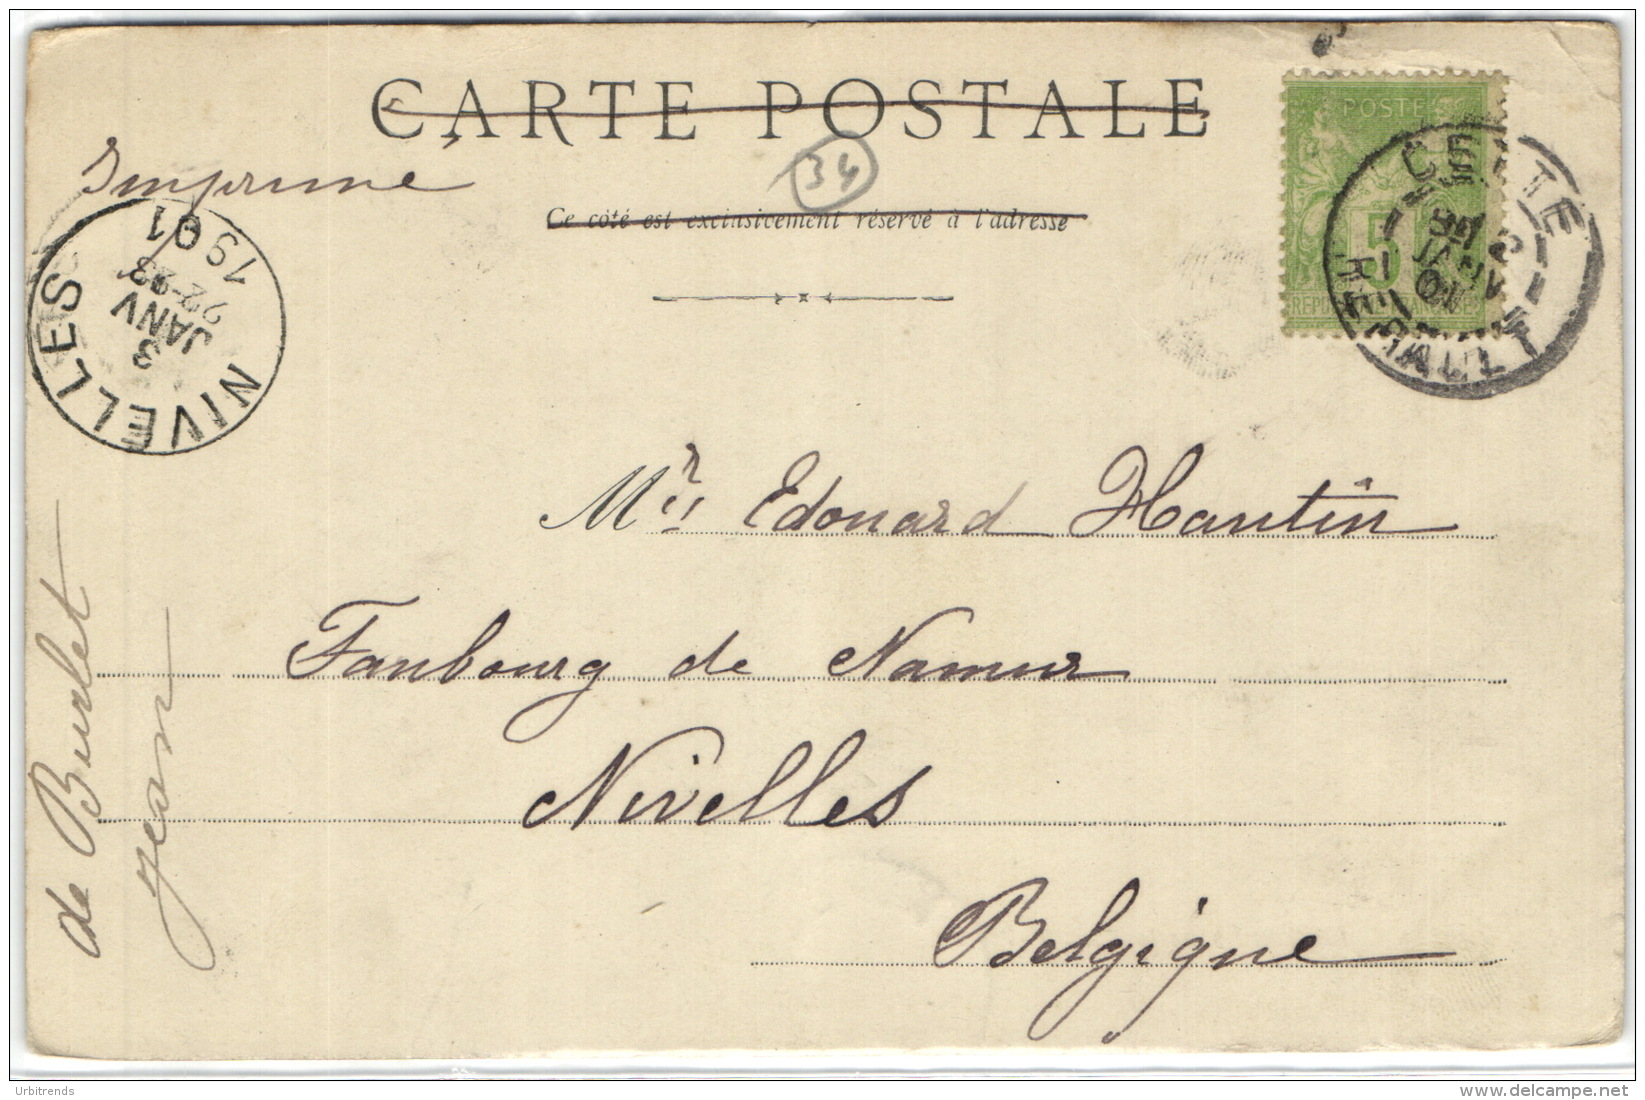 CARTE POSTALE
Imprimé
34
Ce côté est exclusivement réservé à l'adresse
POSTE
5
REPUBLIQUE FRANÇAISE
CETTE
2
JANV
01
HERAULT
NIVELLES
3
JANV
22-23
1901
Mr Edouard Hautin
Faubourg de Namur
Nivelles
Belgique
de Burlet
Jean
Urbitrends
delcampe.net